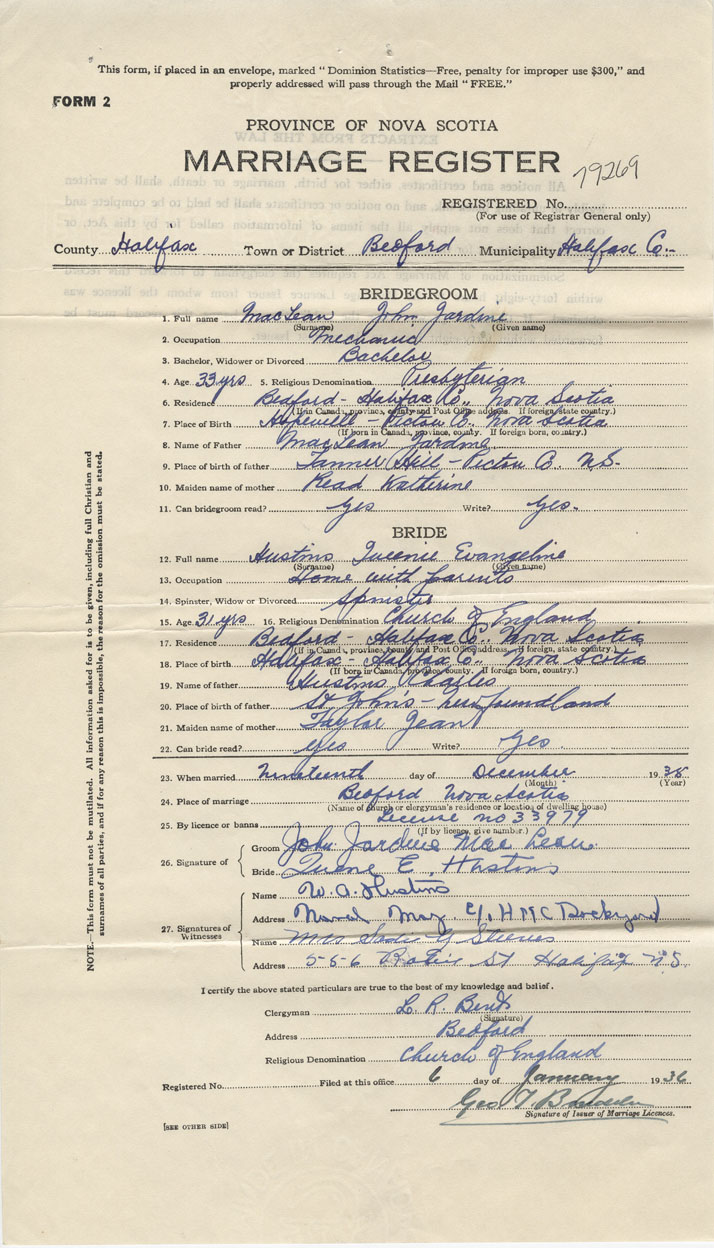 This form, if placed in an envelope, marked "Dominion Statistics—Free, penalty for improper use $300," and
properly addressed will pass through the Mail "FREE."
FORM 2
PROVINCE OF NOVA SCOTIA
MARRIAGE REGISTER 79269
REGISTERED No.
(For use of Registrar General only)
County Halifax Town or District Bedford Municipality Halifax Co.
BRIDEGROOM
1. Full name MacLean John Jardine
(Surname) (Given name)
2. Occupation Mechanic
3. Bachelor, Widower or Divorced Bachelor
4. Age 33 yrs 5. Religious Denomination Presbyterian
6. Residence Bedford - Halifax Co., Nova Scotia
(If in Canada, province, county and Post Office address. If foreign, state country.)
7. Place of Birth Hopewell - Pictou Co. Nova Scotia
(If born in Canada, province, county. If foreign born, country.)
8. Name of Father MacLean Jardine
9. Place of birth of father Tanner Hill - Pictou Co. N.S.
10. Maiden name of mother Read Katherine
11. Can bridegroom read? Yes Write? Yes.
BRIDE
12. Full name Hustins Queenie Evangeline
(Surname) (Given name)
13. Occupation Home with parents
14. Spinster, Widow or Divorced Spinster
15. Age 31 yrs 16. Religious Denomination Church of England
17. Residence Bedford - Halifax Co., Nova Scotia
(If in Canada, province, county and Post Office address. If foreign, state country.)
18. Place of birth Halifax - Halifax Co. Nova Scotia
(If born in Canada, province, county. If foreign born, country.)
19. Name of father Hustins Charles
20. Place of birth of father St John's - Newfoundland
21. Maiden name of mother Taylor Jean
22. Can bride read? Yes Write? Yes
23. When married Nineteenth day of December 19
(Month) (Year)
24. Place of marriage Bedford Nova Scotia
(Name of church or clergyman's residence or location of dwelling house)
25. By licence or banns License no 33979
(If by licence, give number.)
26. Signature of
Groom John Jardine MacLean
Bride E. Hustins
27. Signatures of Witnesses
Name W. A. Hustins
Address Naval Mag. C/o HMC Dockyard
Name Mrs Sadie G
Address 556 St Halifax N.S
I certify the above stated particulars are true to the best of my knowledge and belief.
Clergyman L. R.
(Signature)
Address Bedford
Religious Denomination Church of England
Registered No. Filed at this office 6 day of January 1936
Geo T.
Signature of Issuer of Marriage Licences.
[SEE OTHER SIDE]
NOTE.—This form must not be mutilated. All information asked for is to be given, including full Christian and
surnames of all parties, and if for any reason this is impossible, the reason for the omission must be stated.